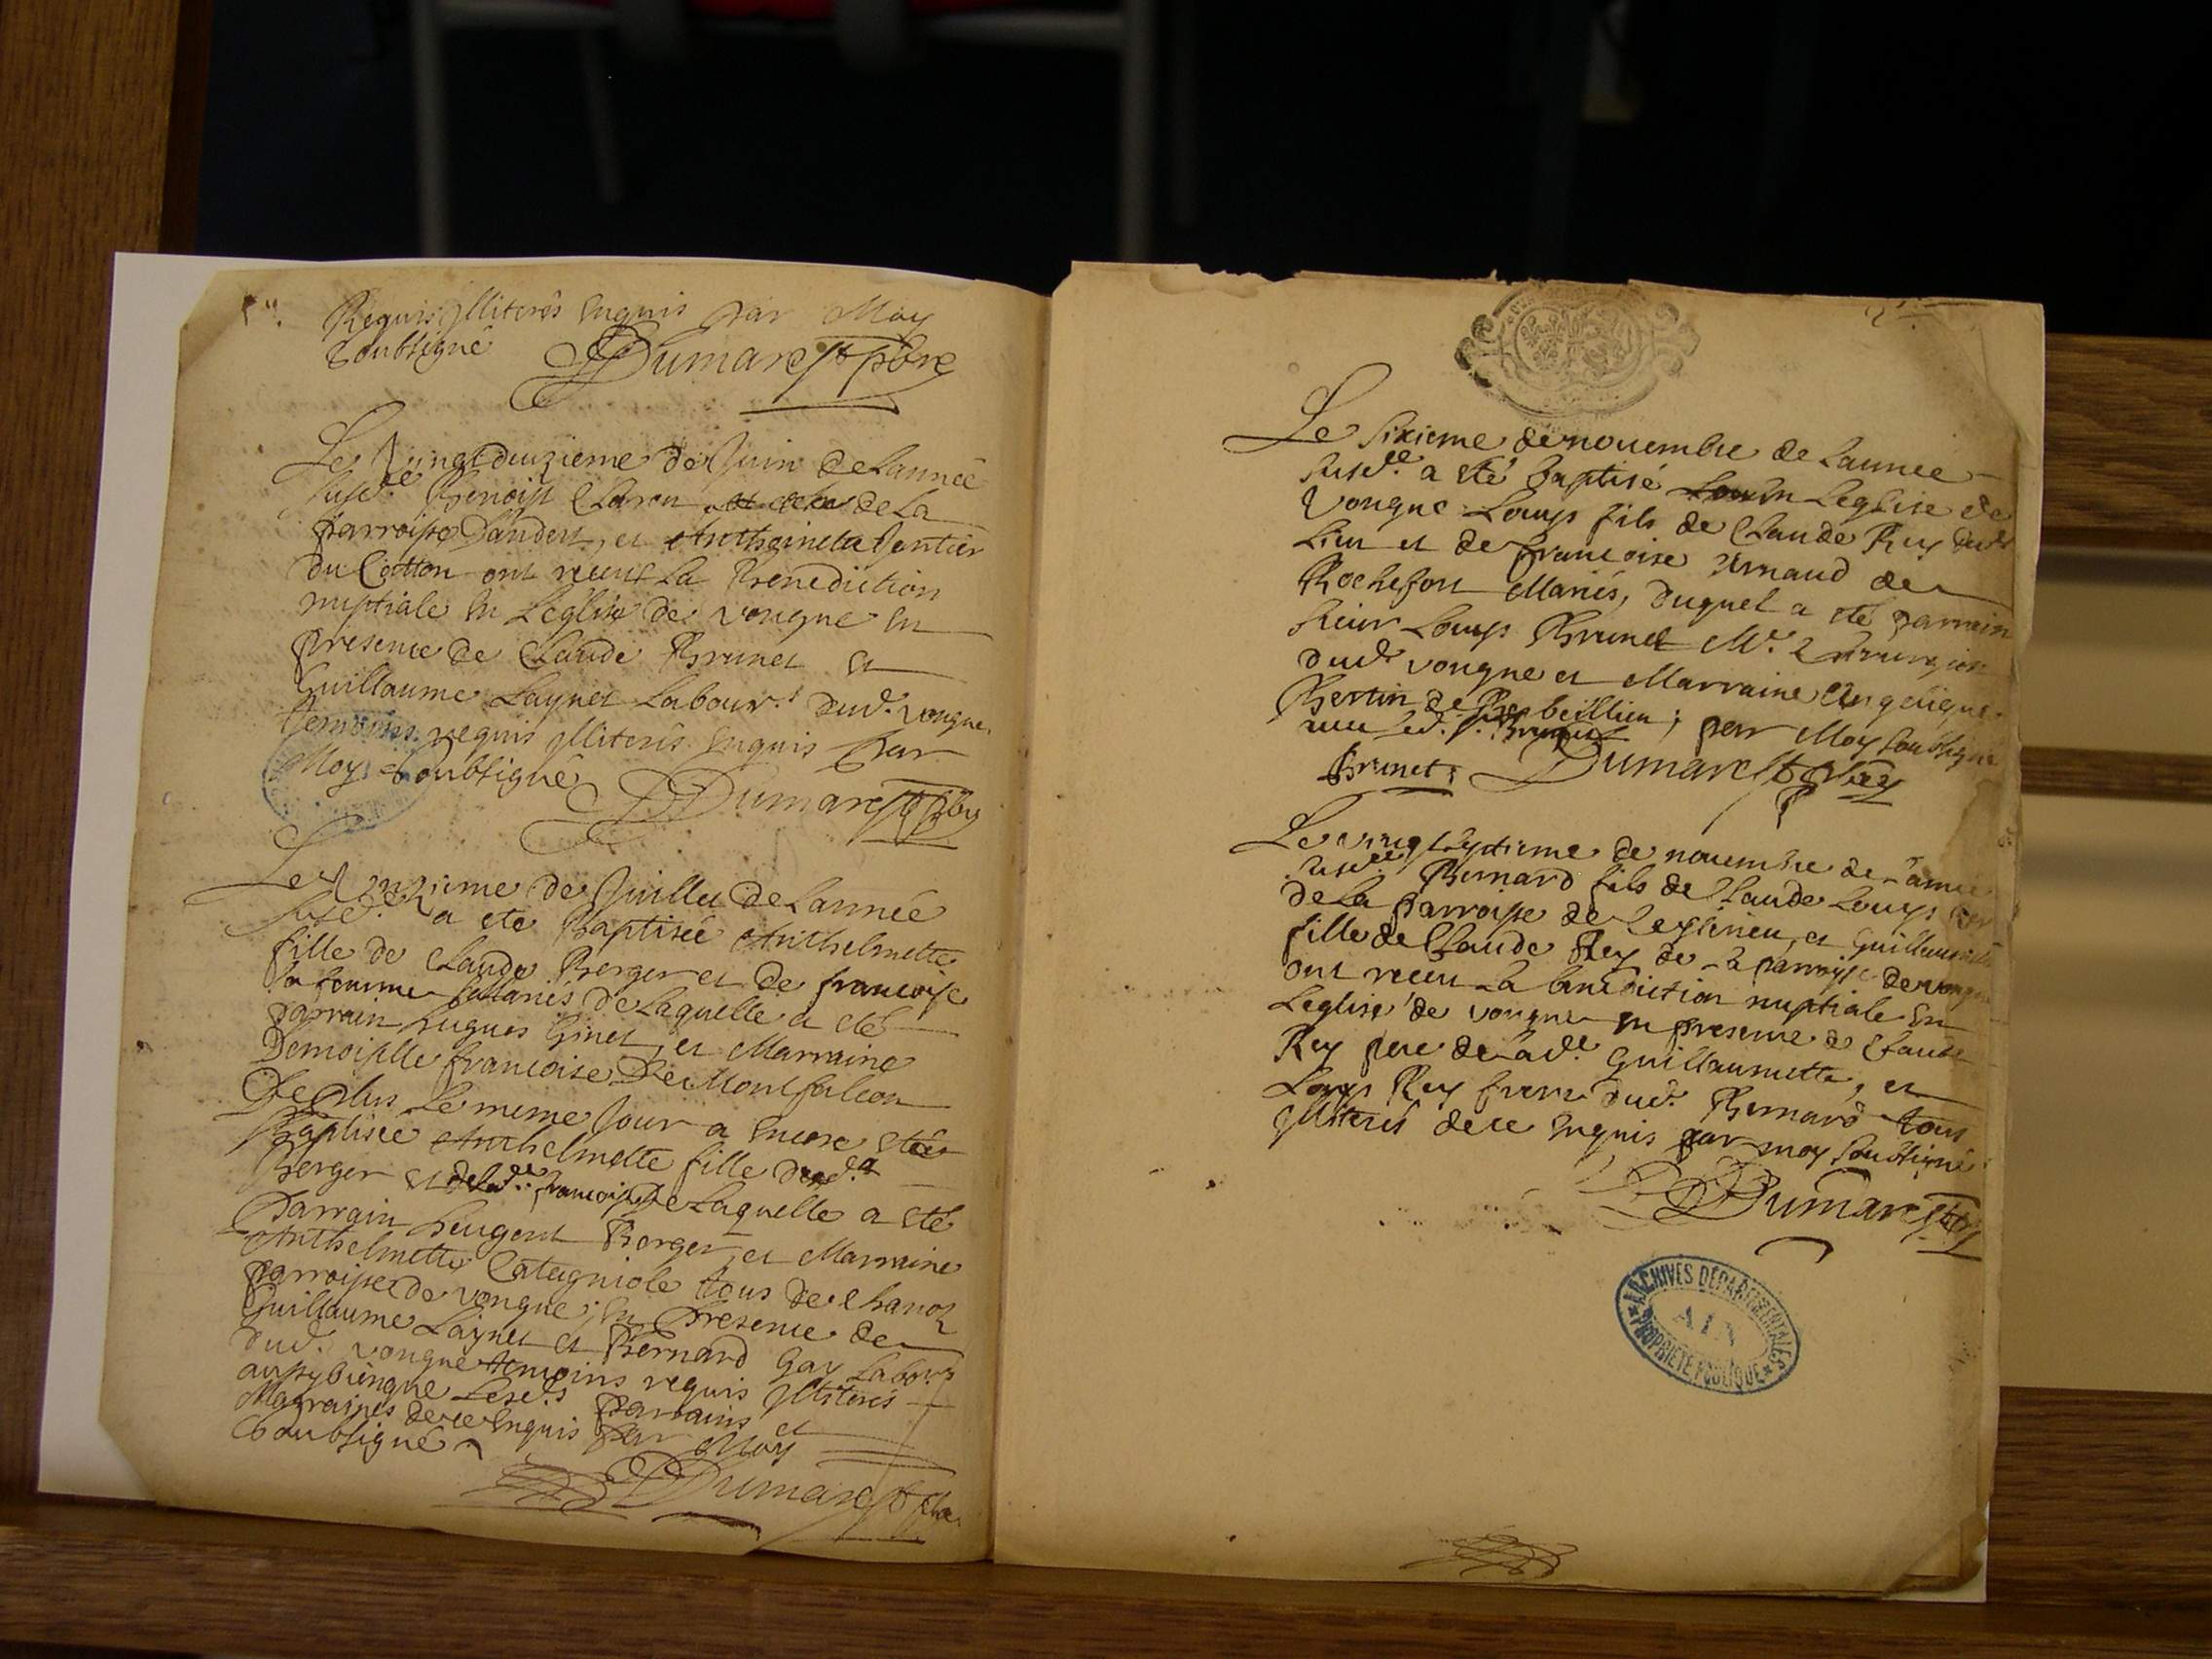 Requis Illiterés Enquis par Moy
Soubsigné Dumarest pbre
Le Vingtdeuzieme de Juin de Lannée
susd.ee Benoist Claron de La
parroisse Dandert, et Anthoinetta
du Cotton ont receut La Benediction
nuptiale En Leglise de vongne En
presence de Claude Brunet Et
Guillaume Laynet Labour.s dud. vongne
temoins requis Illiterés Enquis par
Moy Soubsigné Dumarest
Le Onzieme de Juillet de Lannée
susd. a eté Baptisée Anthelmette
fille de Claude Berger et de francoise
sa femme de Laquelle a eté
parrain hugues Ginet, et Marraine
Demoiselle francoise De Montfalcon
De plus Le meme Jour a Encore etée
Baptisée Anthelmette fille dud.
Berger et de lad.e francoise De Laquelle a eté
Parrain heugent Berger, et Marraine
Anthelmette Catagniole tous de Chanoz
parroisse de vongne, En Presence de
Guillaume Laynet et Bernard Gay Labour.s
dud. vongne temoins requis Illiterés
aussy bienque Lesd.s Parrains et
Marraines de ce Enquis Par Moy
Soubsigné
Dumarest
Le sixieme de nouembre de Lannee
susd.ee a eté baptisé En Leglise de
Vongne Louys fils de Claude Rey dud.
Lieu et de francoise Arnaud de
Rochefort Mariés, duquel a eté parrain
sieur Louys Brunet M.e Chirurgien
dud. vongne et Marraine Angelique
Bertin de ; par Moy soubsigné
avec led. s. Brunet
Brunet Dumarest
Le vingt septieme de nouembre de Lannee
susd.ee Bernard fils de Claude Louys
de La parroisse de Ceyzerieu, et Guillaumette
fille de Claude Rey de La parroisse de vongne
ont receu La benediction nuptiale En
Leglise de vongne en presence de Claude
Rey pere de Lad.e Guillaumette, et
Louys Rey frere dud. Bernard tous
Illiterés de ce Enquis par moy soubsigné
Dumarest
ARCHIVES DÉPARTEMENTALES
AIN
PROPRIÉTÉ PUBLIQUE